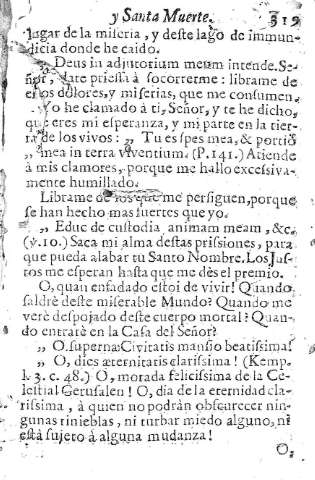 y Santa Muerte. 319
lugar de la miseria, y deste lago de immun-
dicia donde he caido.
„ Deus in adjutorium meum intende. Se-
ñor, date priessa à socorrerme: librame de
estos dolores, y miserias, que me consumen.
Yo he clamado à ti, Señor, y te he dicho,
que eres mi esperanza, y mi parte en la tier-
ra de los vivos: „ Tu es spes mea, & portio
„ mea in terra viventium. (P. 141.) Atiende
à mis clamores, porque me hallo excessiva-
mente humillado.
Librame de los que me persiguen, porque
se han hecho mas fuertes que yo.
„ Educ de custodia animam meam, &c.
(v. 10.) Saca mi alma destas prissiones, para
que pueda alabar tu Santo Nombre. Los Jus-
tos me esperan hasta que me dès el premio.
O, quan enfadado estoi de vivir! Quando
saldrè deste miserable Mundo? Quando me
verè despojado deste cuerpo mortal? Quan-
do entrarè en la Casa del Señor?
„ O. supernæ Civitatis mansio beatissima!
„ O, dies æternitatis clarissima! (Kemp.
l. 3. c. 48.) O, morada felicissima de la Ce-
lestial Gerusalen! O, dia de la eternidad cla-
rissima, à quien no podràn obscurecer nin-
gunas tinieblas, ni turbar miedo alguno, ni
està sujeto à alguna mudanza!
O,